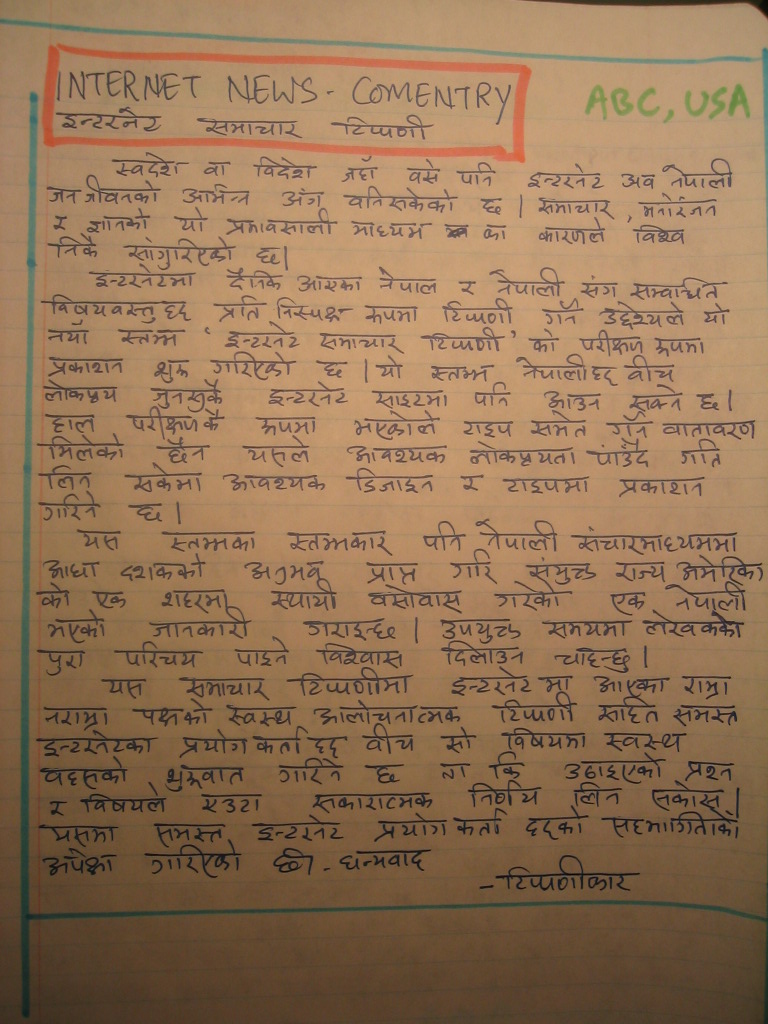 INTERNET NEWS - COMENTRY
ABC, USA
इन्टरनेट समाचार टिप्पणी
स्वदेश वा विदेश जहाँ बसे पनि इन्टरनेट अब नेपाली
जनजीवनको अभिन्न अंग बनिसकेको छ । समाचार, मनोरंजन
र ज्ञानको यो प्रभावसाली माध्यम का कारणले विश्व
निकै सांगुरिएको छ।
इन्टरनेटमा दैनिक आएका नेपाल र नेपाली संग सम्वन्धित
विषयवस्तुहरु प्रति निस्पक्ष रुपमा टिप्पणी गर्ने उद्देश्यले यो
नयाँ स्तम्भ 'इन्टरनेट समाचार टिप्पणी' को परीक्षण रुपमा
प्रकाशन शुरु गरिएको छ । यो स्तम्भ नेपालीहरु बीच
लोकप्रिय जुनसुकै इन्टरनेट साइटमा पनि आउन सक्ने छ।
हाल परीक्षणकै रुपमा भएकोले टाइप समेत गर्ने वातावरण
मिलेको छैन यसले आवश्यक लोकप्रियता पाउँदै गति
लिन सकेमा आवश्यक डिजाइन र टाइपमा प्रकाशन
गरिने छ।
यस स्तम्भका स्तम्भकार पनि नेपाली संचारमाध्यममा
आधा दशकको अनुभव प्राप्त गरि संयुक्त राज्य अमेरिका
को एक शहरमा स्थायी बसोवास गरेको एक नेपाली
भएको जानकारी गराइन्छ । उपयुक्त समयमा लेखकको
पुरा परिचय पाइने विश्वास दिलाउन चाहन्छु।
यस समाचार टिप्पणीमा इन्टरनेटमा आएका राम्रा
नराम्रा पक्षको स्वस्थ आलोचनात्मक टिप्पणी सहित समस्त
इन्टरनेटका प्रयोगकर्ताहरु बीच सो विषयमा स्वस्थ
बहसको शुरुवात गरिने छ ता कि उठाइएको प्रश्न
र विषयले एउटा सकारात्मक निर्णय लिन सकोस।
यसमा समस्त इन्टरनेट प्रयोगकर्ता हरुको सहभागिताको
अपेक्षा गरिएको छ। - धन्यवाद
- टिप्पणीकार